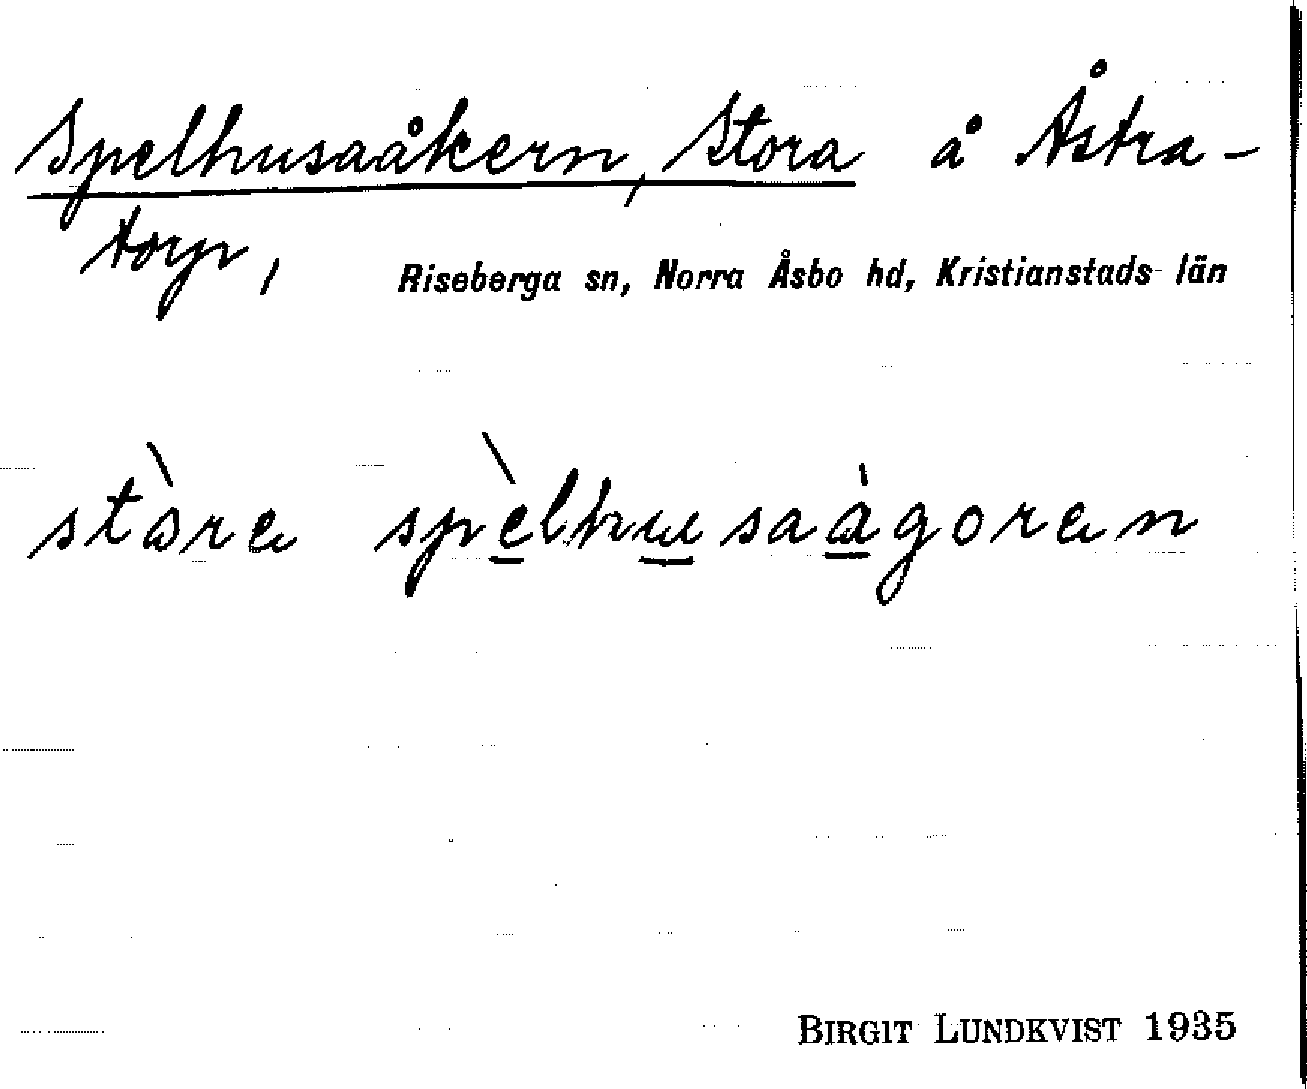 Spelhusaåkern, Stora å Åstra-
torp,
Riseberga sn, Norra Åsbo hd, Kristianstads län
stòra spèlhusaágoran
BIRGIT LUNDKVIST 1935